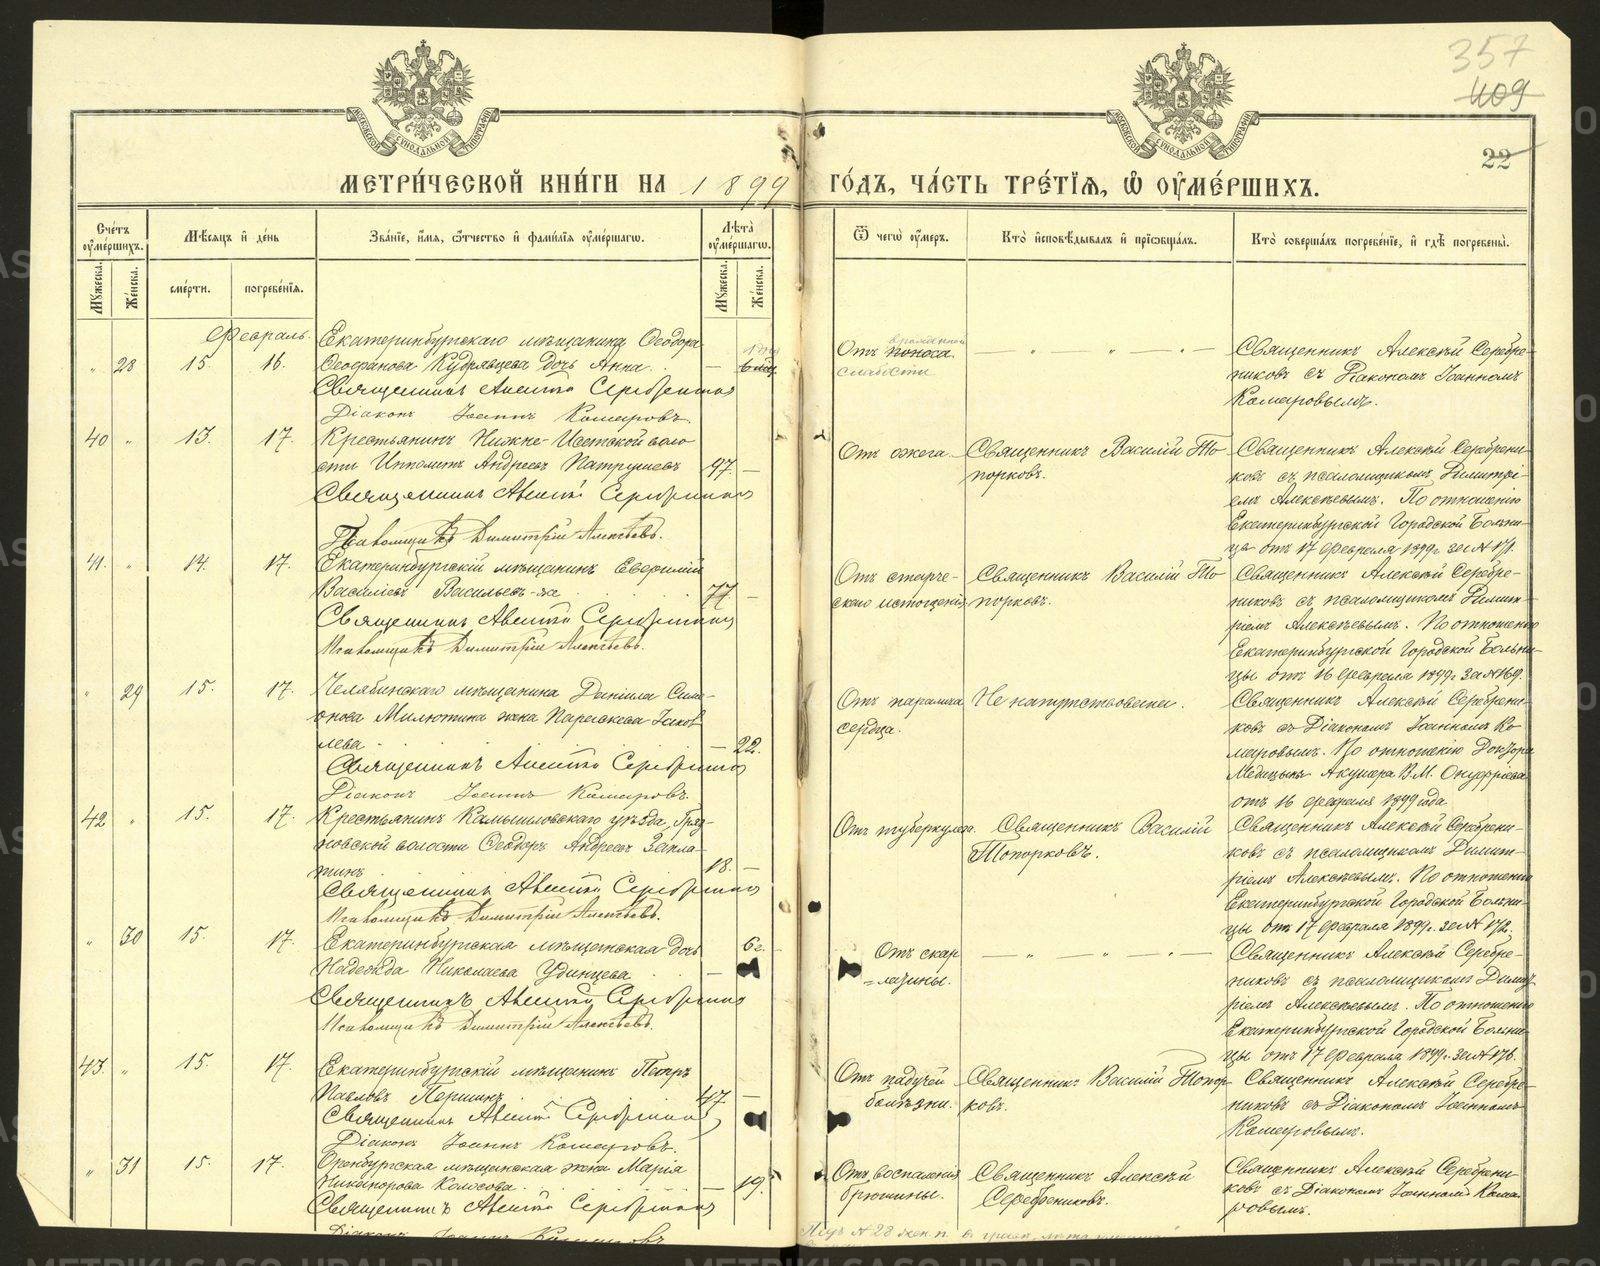 357
409
22
МОСКОВСКОЙ СѴНОДАЛЬНОЙ ТИПОГРАФІИ
МОСКОВСКОЙ СѴНОДАЛЬНОЙ ТИПОГРАФІИ
МЕТРИ́ЧЕСКОЙ КНИ́ГИ НА 1899 ГО́ДЪ, ЧА́СТЬ ТРЕ́ТІѦ, Ѡ҆ ОУ҆МЕ́РШИХЪ.
Сче́тъ оу҆ме́ршихъ.
Мѣ́сяцъ и҆ де́нь
Зва́нїе, и҆́мя, ѻ҆́тчество и҆ фами́лїя оу҆ме́ршагѡ.
Лѣ́та оу҆ме́ршагѡ.
Ѿ чегѡ̀ оу҆́меръ.
Кто̀ и҆сповѣ́дывалъ и҆ прїѡбща́лъ.
Кто̀ соверша́лъ погребе́нїе, и҆ гдѣ̀ погребены̀.
Му́жеска.
Же́нска.
сме́рти.
погребе́нїя.
Му́жеска.
Же́нска.
Февраль.
Екатеринбургскаго мѣщанина Ѳеодора
„ 28 15. 16. Ѳеофанова Кудрявцева дочь Анна. —
Священникъ Алексѣй Серебренниковъ
Діаконъ Іоаннъ Комаровъ.
Отъ поноса
слабости
— „ — „ — „ —
Священникъ Алексѣй Серебре-
никовъ съ Діакономъ Іоанномъ
Комаровымъ.
40 „ 13. 17. Крестьянинъ Нижне-Исетской воло
сти Ипполитъ Андреевъ Патрушевъ 97. —
Священникъ Алексѣй Серебренниковъ
Псаломщикъ Димитрій Алексѣевъ.
Отъ ожега
Священникъ Василій То-
порковъ.
Священникъ Алексѣй Серебрени-
ковъ съ псаломщикомъ Димитрі-
емъ Алексѣевымъ. По отношенію
Екатеринбургской Городской Больни-
цы отъ 17 февраля 1899 г. за № 171.
41. „ 14. 17. Екатеринбургскій мѣщанинъ Еверилій
Василіевъ Васильевъ-же 77. —
Священникъ Алексѣй Серебренниковъ
Псаломщикъ Димитрій Алексѣевъ.
Отъ старче-
скаго истощенія.
Священникъ Василій То
порковъ.
Священникъ Алексѣй Серебре-
никовъ съ псаломщикомъ Димит-
ріемъ Алексѣевымъ. По отношенію
Екатеринбургской Городской Больни-
цы отъ 16 февраля 1899 г. за № 169.
„ 29 15. 17. Челябинскаго мѣщанина Даніила Сим-
онова Милютина жена Параскева Іаков
лева — 22.
Священникъ Алексѣй Серебренниковъ
Діаконъ Іоаннъ Комаровъ.
Отъ паралича
сердца.
Не напутствована.
Священникъ Алексѣй Серебрени-
ковъ съ Діакономъ Іоанномъ Ко
маровымъ. По отношенію Доктора
Медицины Акушера В.М. Онуфріева
отъ 16 февраля 1899 года
42 „ 15. 17. Крестьянинъ Камышловскаго уѣзда, Гряз-
новской волости Ѳеодоръ Андреевъ Запла-
тинъ 18. —
Священникъ Алексѣй Серебренниковъ
Псаломщикъ Димитрій Алексѣевъ.
Отъ туберкулеза.
Священникъ Василій
Топорковъ.
Священникъ Алексѣй Серебрени-
ковъ съ псаломщикомъ Димит-
ріемъ Алексѣевымъ. По отношенію
Екатеринбургской Городской Больни-
цы отъ 17 февраля 1899 г. за № 172.
„ 30 15. 17. Екатеринбургская мѣщанская дочь
Надежда Николаева Удинцева —
Священникъ Алексѣй Серебренниковъ
Псаломщикъ Димитрій Алексѣевъ.
Отъ скар
=латины.
— „ — „ — „ —
Священникъ Алексѣй Серебре-
никовъ съ псаломщикомъ Димит
ріемъ Алексѣевымъ. По отношенію
Екатеринбургской Городской Больни-
цы отъ 17 февраля 1899 г. за № 176.
43. „ 15. 17. Екатеринбургскій мѣщанинъ Петръ
Павловъ Першинъ 47. —
Священникъ Алексѣй Серебренниковъ
Діаконъ Іоаннъ Комаровъ.
Отъ падучей
болѣзни.
Священникъ Василій Топор-
ковъ.
Священникъ Алексѣй Серебре-
никовъ съ Діакономъ Іоанномъ
Комаровымъ.
„ 31 15. 17. Оренбургская мѣщанская жена Марія
Никифорова Колосова — 19.
Священникъ Алексѣй Серебренниковъ
Діаконъ Іоаннъ Комаровъ
Отъ воспаленія
брюшины.
Священникъ Алексѣй
Серебренниковъ.
Священникъ Алексѣй Серебрени-
ковъ съ Діакономъ Іоанномъ Кома-
ровымъ.
METRIKI.GASO-URAL.RU